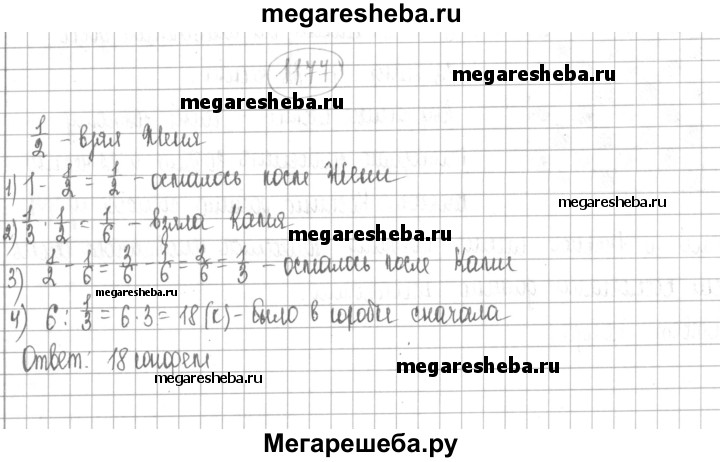 megaresheba.ru
1177
megaresheba.ru
megaresheba.ru
1/2 - взял Женя
1) 1 - 1/2 = 1/2 - осталось после Жени
megaresheba.ru
2) 1/3 · 1/2 = 1/6 - взяла Катя
megaresheba.ru
3) 1/2 - 1/6 = 3/6 - 1/6 = 2/6 = 1/3 - осталось после Кати
megaresheba.ru
4) 6 : 1/3 = 6 · 3 = 18 (к) - было в коробке сначала
Ответ: 18 конфет
megaresheba.ru
megaresheba.ru
Мегарешеба.ру